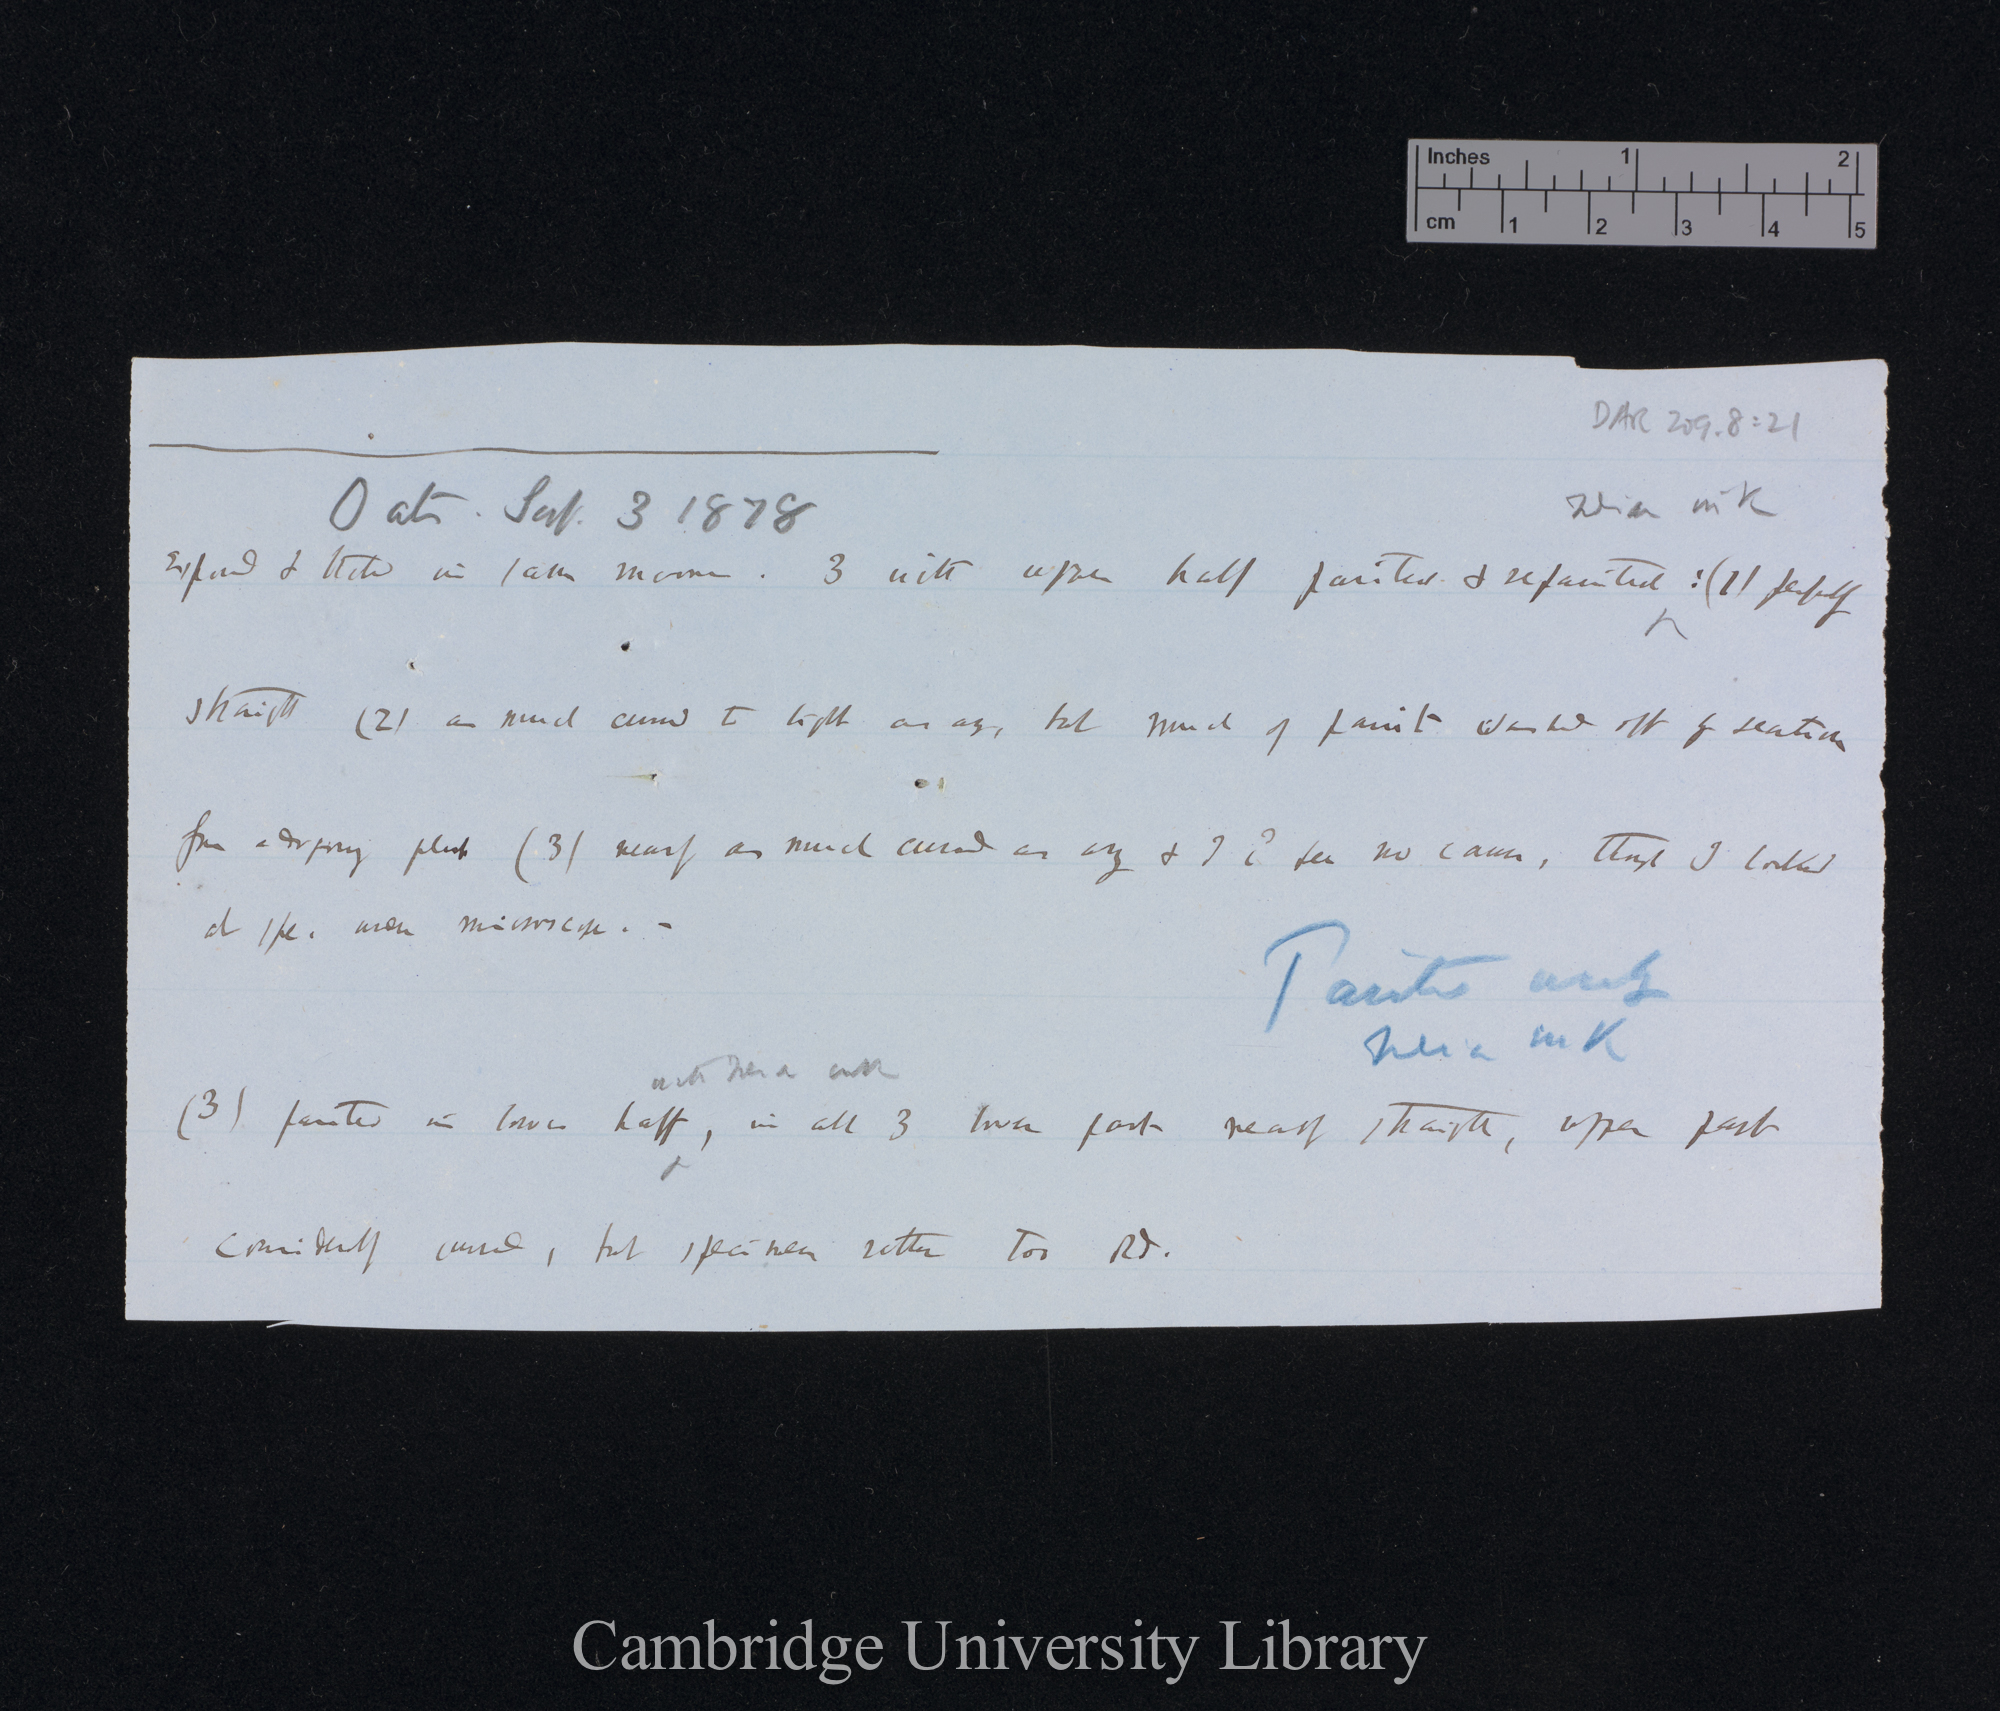 Inches 1 2
cm 1 2 3 4 5
DAR 209.8:21
Oats. Sept. 3 1878
Indian ink
Exposed & in same manner. 3 with upper half painted & repainted : (1) perfectly
straight (2) as much curved to light as any, but much of paint washed off by
from adjoining plant (3) nearly as much curved as any & I cd see no cause, though I looked
at spe. under microscope. –
Painted
Indian ink
with Indian ink
(3) painted in lower half, in all 3 lower part nearly straight, upper part
considerably curved, but specimen rather too old.
Cambridge University Library